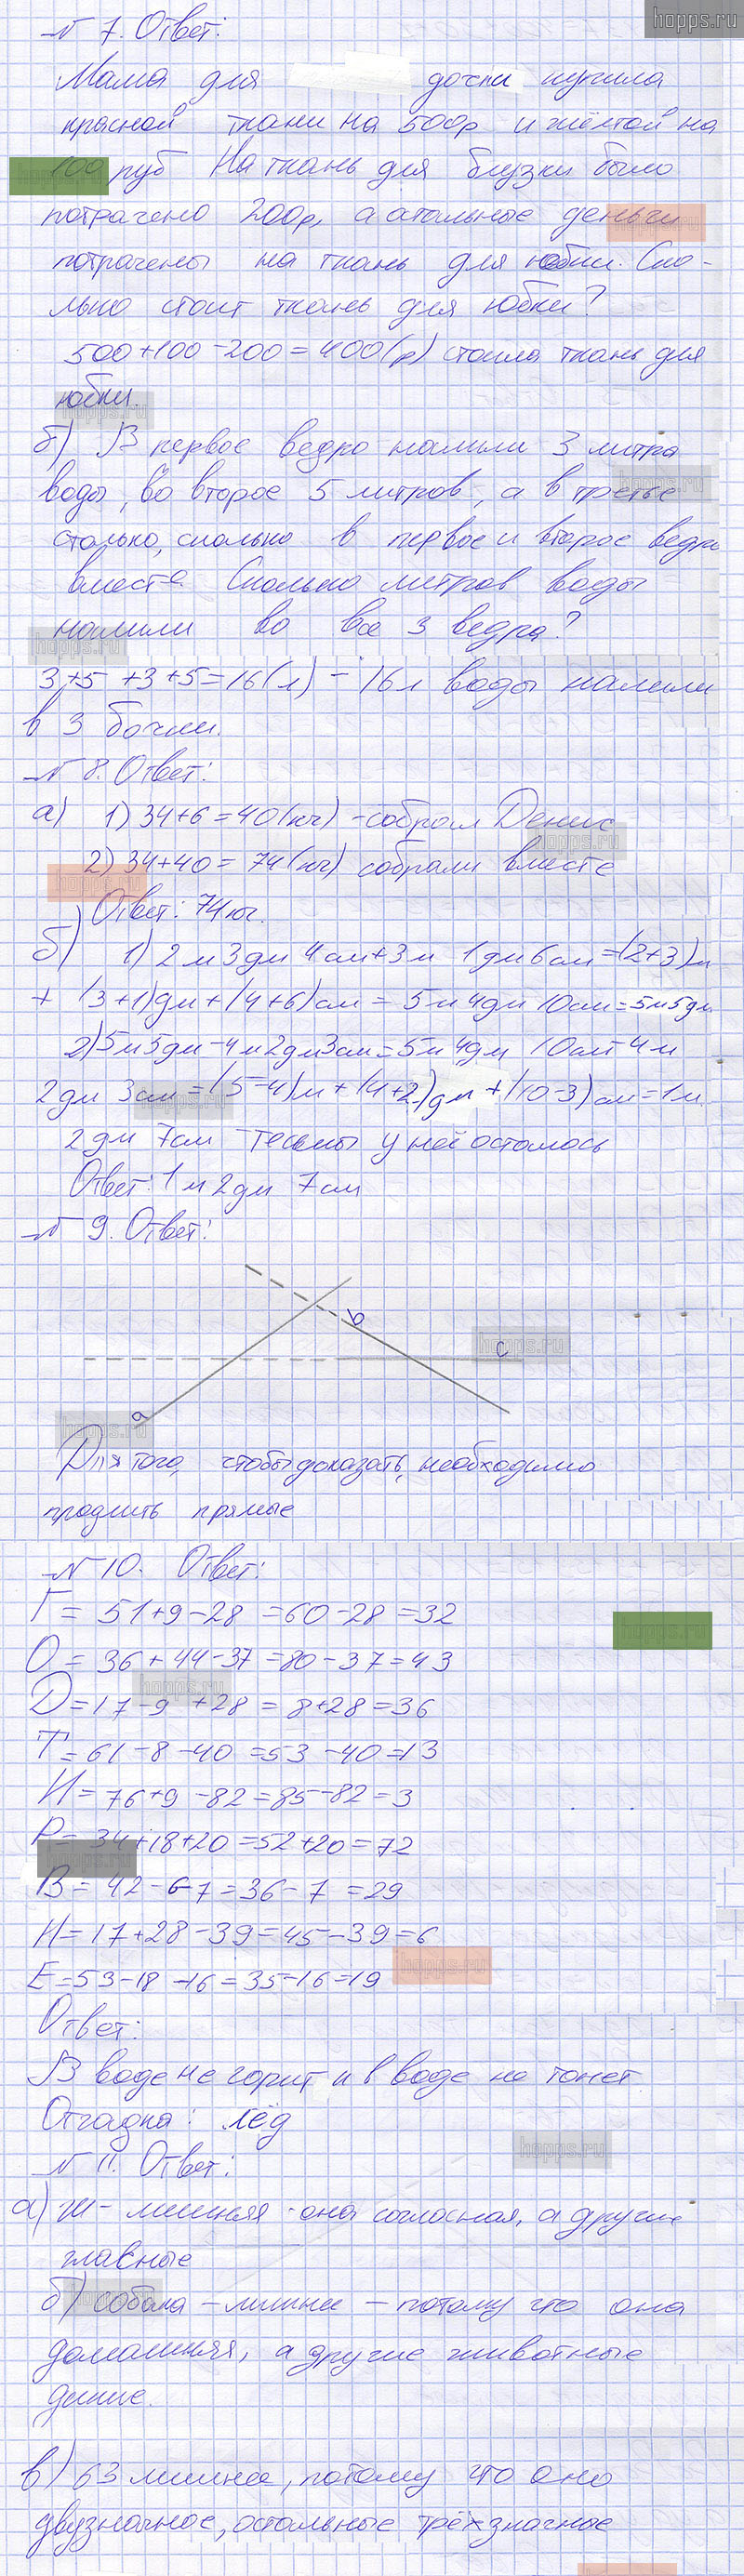 hopps.ru
№ 7. Ответ:
Мама для дочки купила
красной ткани на 500р и жёлтой на
100 руб На ткань для блузки было
потрачено 200р, а остальные деньги
потрачены на ткань для юбки. Ско-
лько стоит ткань для юбки?
500+100-200=400(р) стоила ткань для
юбки.
б) В первое ведро налили 3 литра
воды, во второе 5 литров, а в третье
столько, сколько в первое и второе ведро
вместе Сколько литров воды
налили во все 3 ведра?
3+5+3+5=16(л) - 16л воды налили
в 3 бочки.
№ 8. Ответ:
а) 1) 34+6=40(кг) - собрал Денис
2) 34+40=74(кг) собрали вместе
Ответ: 74кг.
б) 1) 2м 3дм 4см+3м 1дм 6см=(2+3)м
+ (3+1)дм+(4+6)см=5м 4дм 10см=5м5дм
2) 5м5дм-4м2дм3см=5м 4дм 10см-4м
2дм 3см=(5-4)м+(4+2)дм+(10-3)см=1м
2дм 7см тесьмы у неё осталось
Ответ: 1м 2дм 7см
№ 9. Ответ:
b
c
a
Для того, чтобы доказать, необходимо
продлить прямые
№ 10. Ответ:
Г=51+9-28=60-28=32
О=36+44-37=80-37=43
Д=17-9+28=8+28=36
Т=61-8-40=53-40=13
И=76+9-82=85-82=3
Р=34+18+20=52+20=72
В=42-6-7=36-7=29
Н=17+28-39=45-39=6
Е=53-18-16=35-16=19
Ответ:
В воде не горит и в воде не тонет
Отгадка: лёд
№ 11. Ответ:
а) Ш - лишняя - она согласная, а другие
главные
б) собака - лишнее - потому что она
домашняя, а другие животные
дикие.
в) 63 лишнее, потому что оно
двузначное, остальные трёхзначное